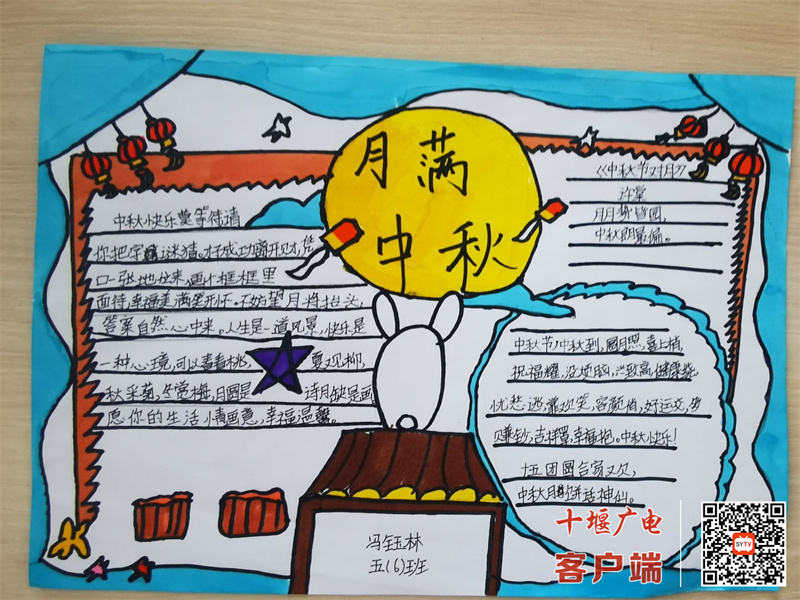 月满
中秋
中秋快乐
你把字谜猜,才成功
口一张地往来,画个框框里
面待幸福美满笑开怀。不妨望月将抬头,
答案自然心中来。人生是一道风景,快乐是
一种心境,可以春看桃, 夏观柳,
秋采菊,冬赏梅,月圆是 诗月缺是画
愿你的生活情画意,幸福温馨。
《中秋节对月》
许棠
月月
中秋朗最偏。
中秋节,中秋到,圆月照,喜上梢,
祝福耀,没烦脑,兴致高,健康绕,
忧愁逃,靠欢笑,容颜俏,好运交,岁
赚钞,吉祥罩,幸福抱。中秋快乐!
十五团圆合家欢,
中秋月饼话神仙。
冯钰林
五(6)班
十堰广电
客户端
SYTV